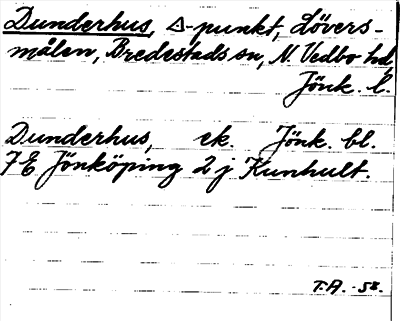 Dunderhus, Δ-punkt, Lövers-
målen, Bredestads sn, N. Vedbo hd,
Jönk. l.
Dunderhus, ek. Jönk. bl.
7E Jönköping 2 j Kunhult.
T.A. -58.